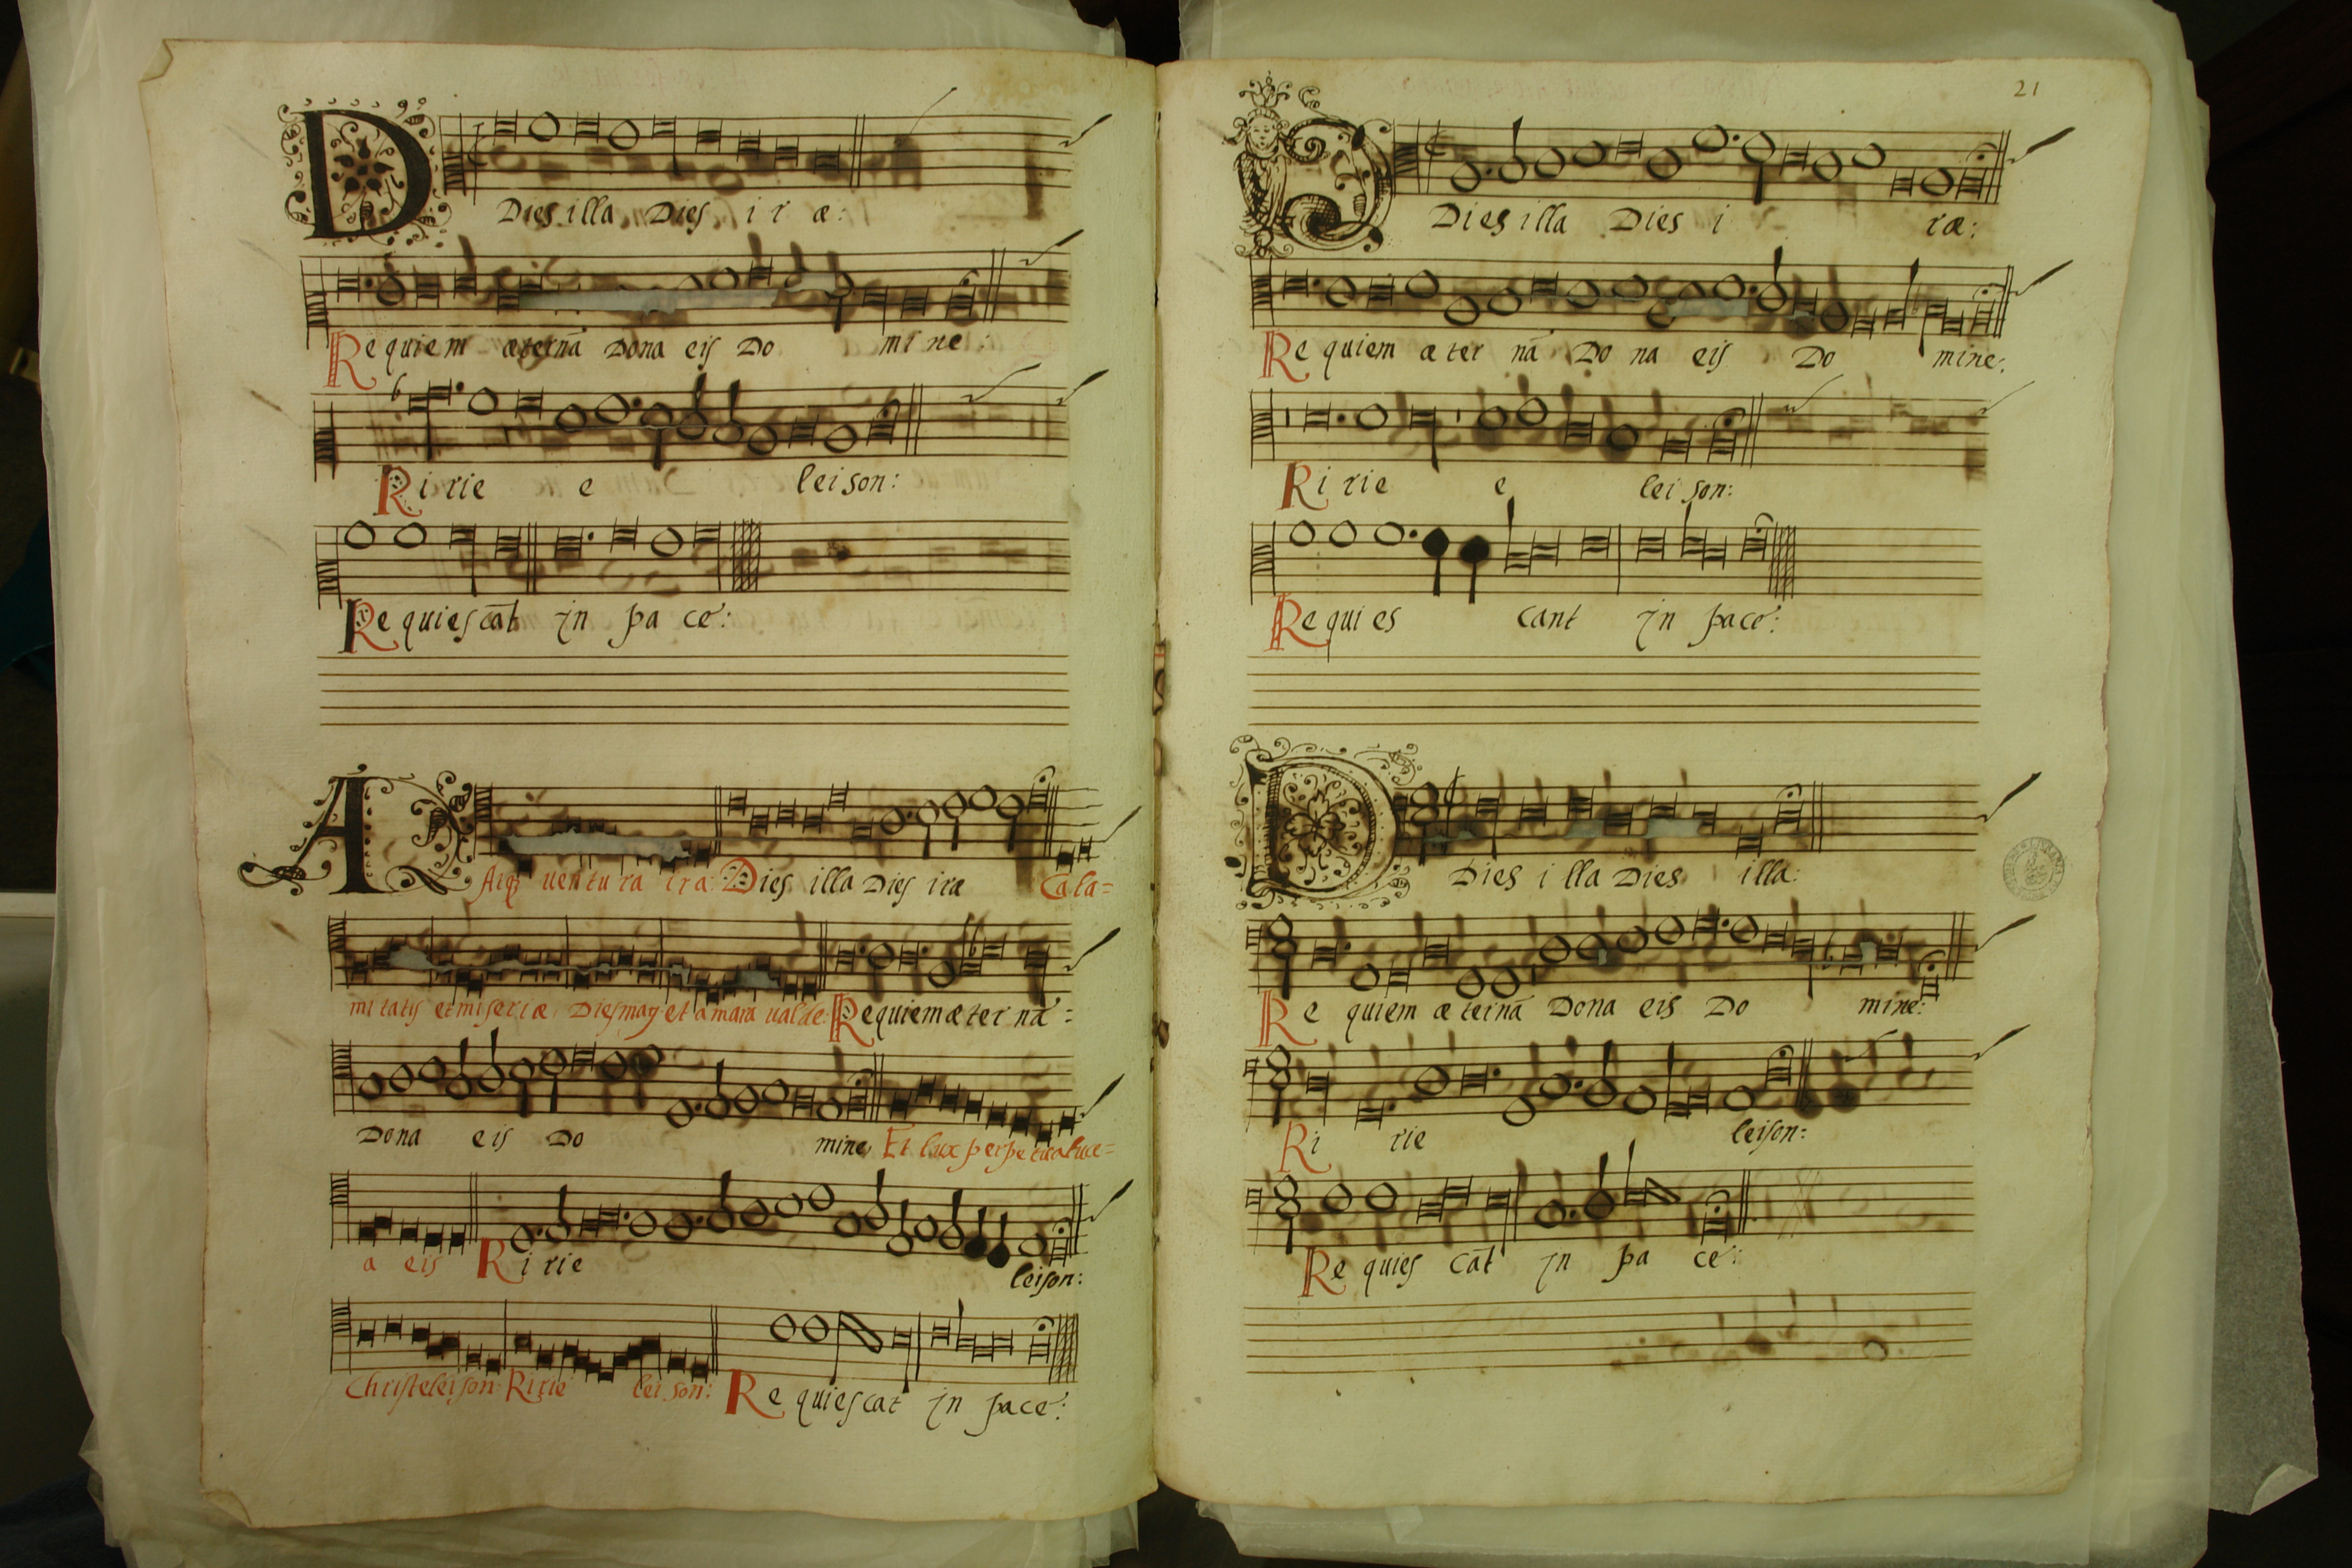 D Dies illa Dies iræ:
Requiem æternā Dona eis Do mine:
Ririe e leison:
Requiescāt in pace:
A Atqȝ uentura ira: Dies illa Dies iræ Cala=
mitatis et miseriæ Dies mag et amara ualde: Requiem æternā=
Dona eis Do mine, Et lux perpetua luce=
a eis Ririe leison:
Christe leison: Ririe leison: Requiescat in pace:
21
D Dies illa Dies i ræ:
Requiem æternā Dona eis Do mine:
Ririe e leison:
Requies cant in pace:
D Dies illa Dies illa:
Requiem æternā Dona eis Do mine:
Ririe leison:
Requies cāt in pa ce: